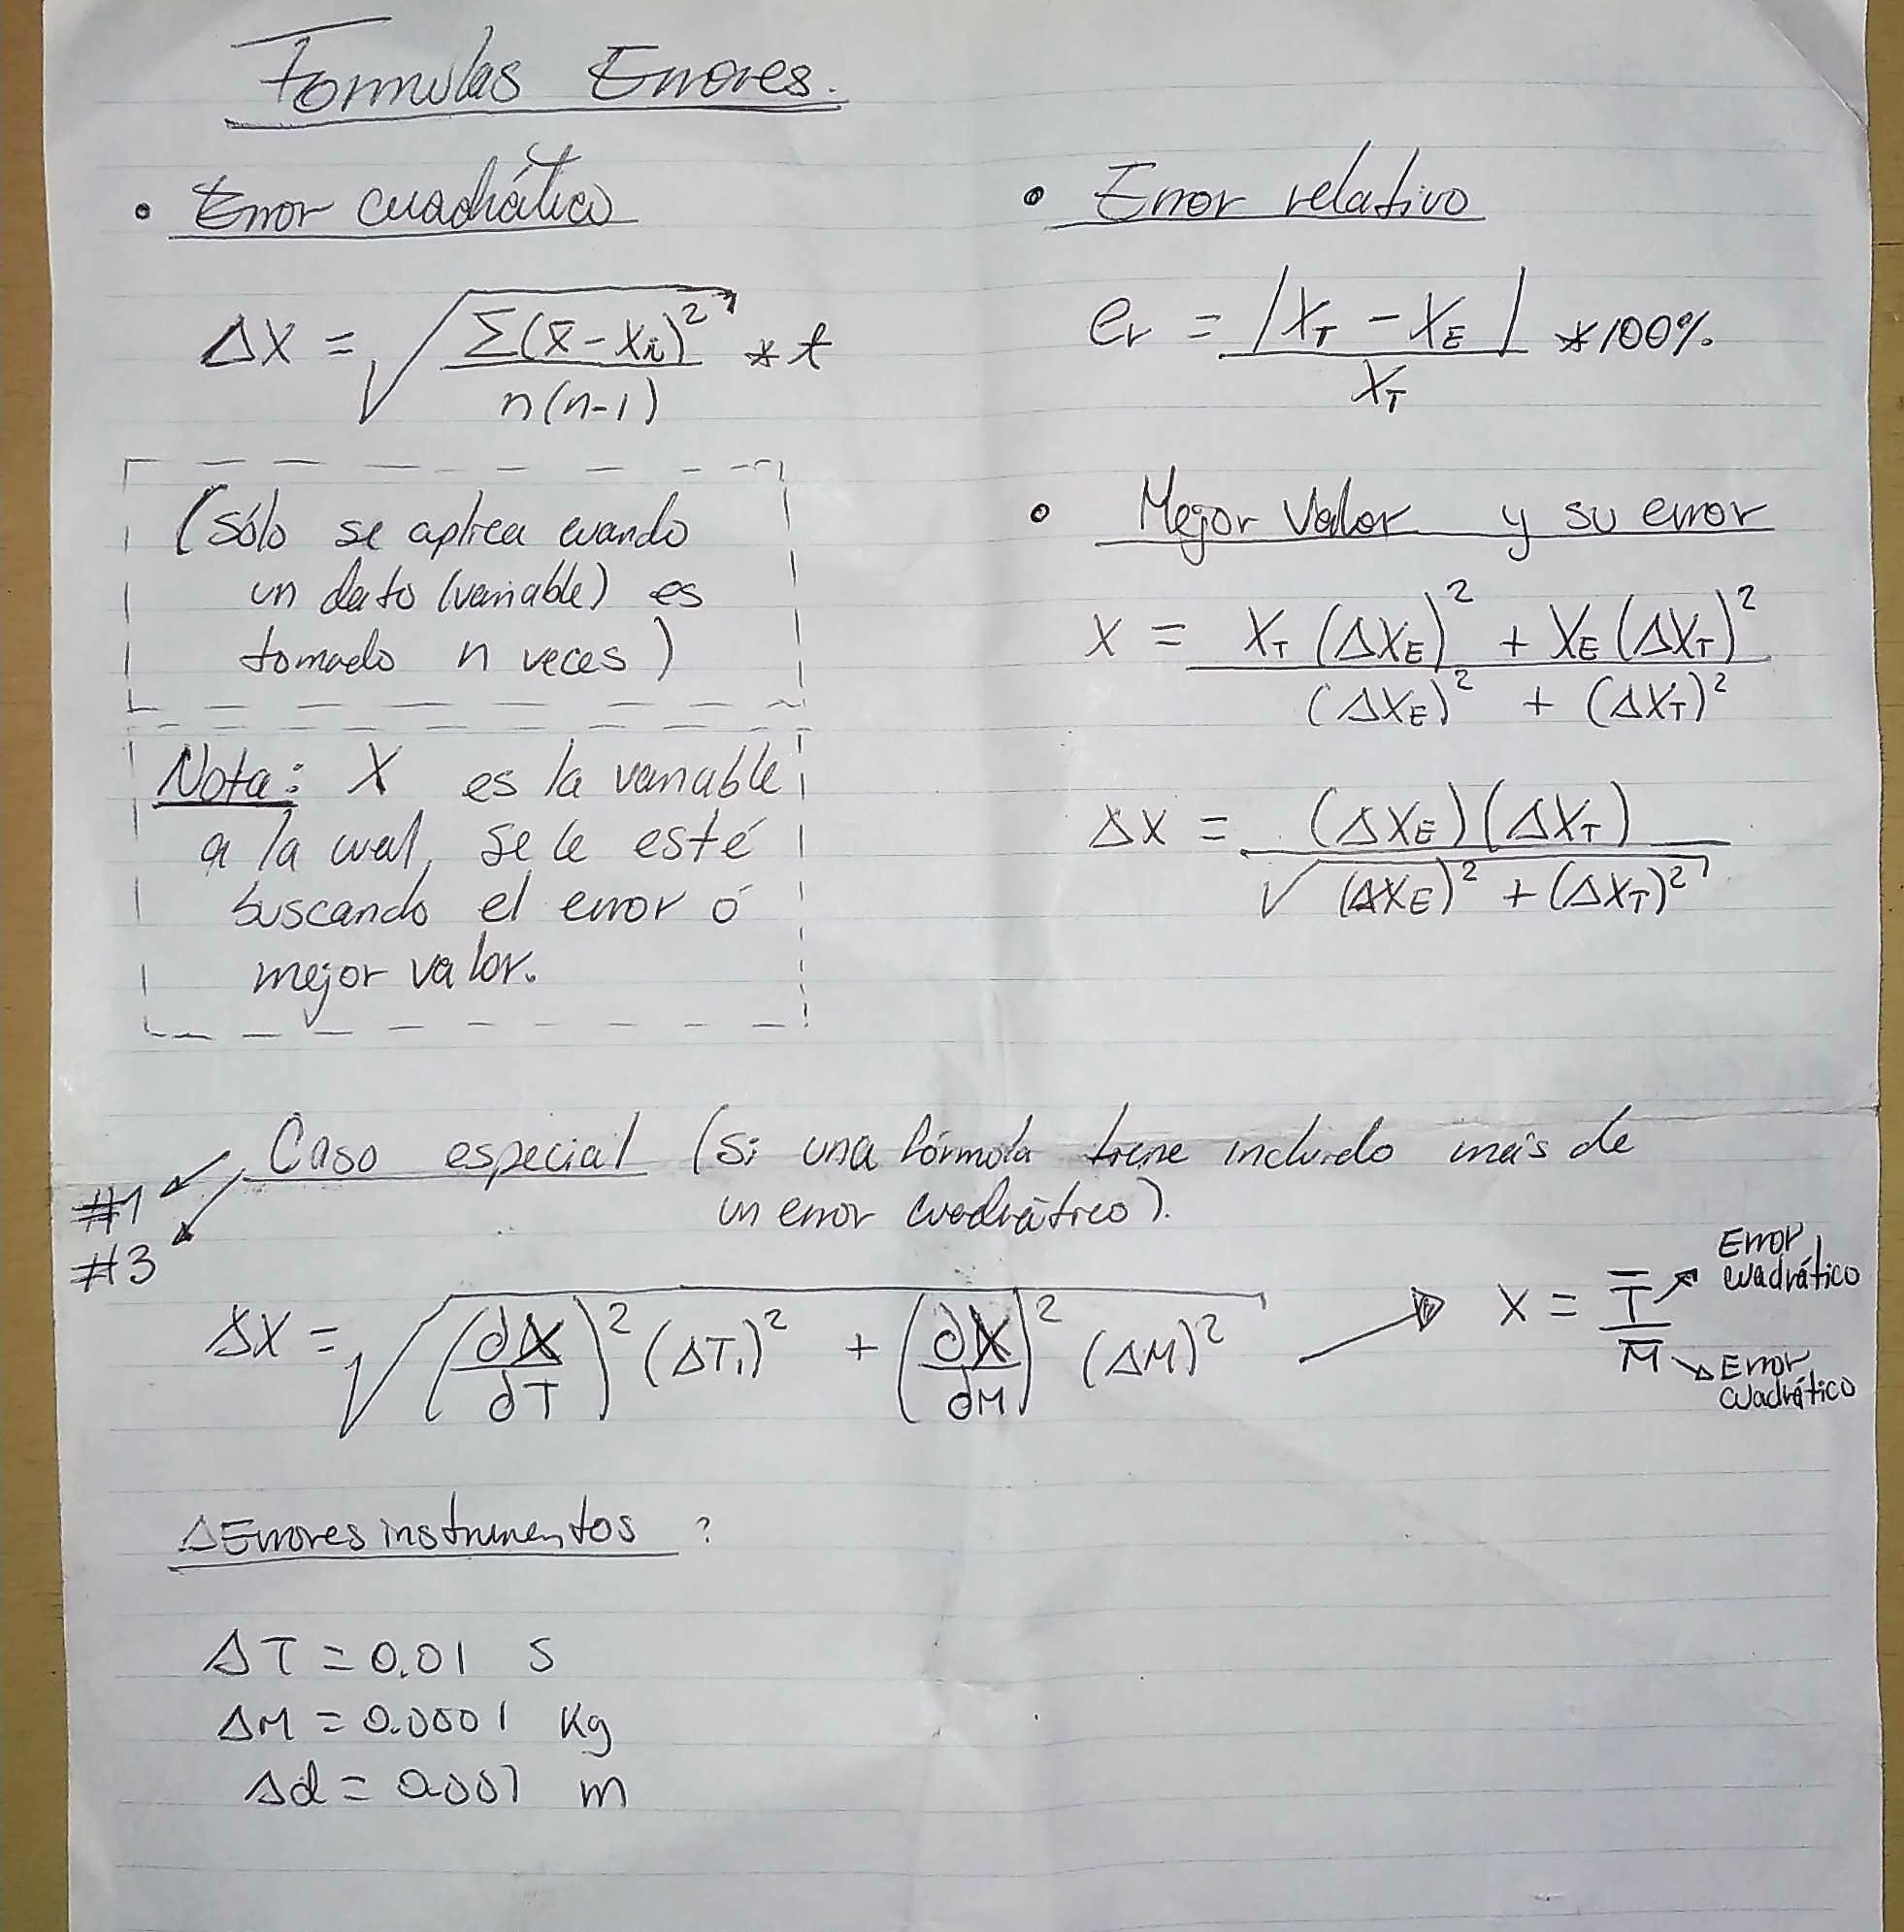 Formulas Errores.
• Error cuadrático
ΔX = √(Σ(x̄ - Xi)² / n(n-1)) * t
(Sólo se aplica cuando
un dato (variable) es
tomado n veces)
Nota: X es la variable
a la cual, se le esté
buscando el error ó
mejor valor.
• Error relativo
er = |X_T - X_E| / X_T * 100%
• Mejor Valor y su error
X = (X_T (ΔX_E)² + X_E (ΔX_T)²) / ((ΔX_E)² + (ΔX_T)²)
ΔX = (ΔX_E)(ΔX_T) / √((ΔX_E)² + (ΔX_T)²)
Caso especial (Si una fórmula tiene incluido más de
un error cuadrático).
#1
#3
ΔX = √((∂X/∂T)² (ΔT₁)² + (∂X/∂M)² (ΔM)²) → X = T̄ / M̄
Error
cuadrático
Error
cuadrático
ΔErrores instrumentos ?
ΔT = 0.01 s
ΔM = 0.0001 Kg
Δd = 0.001 m